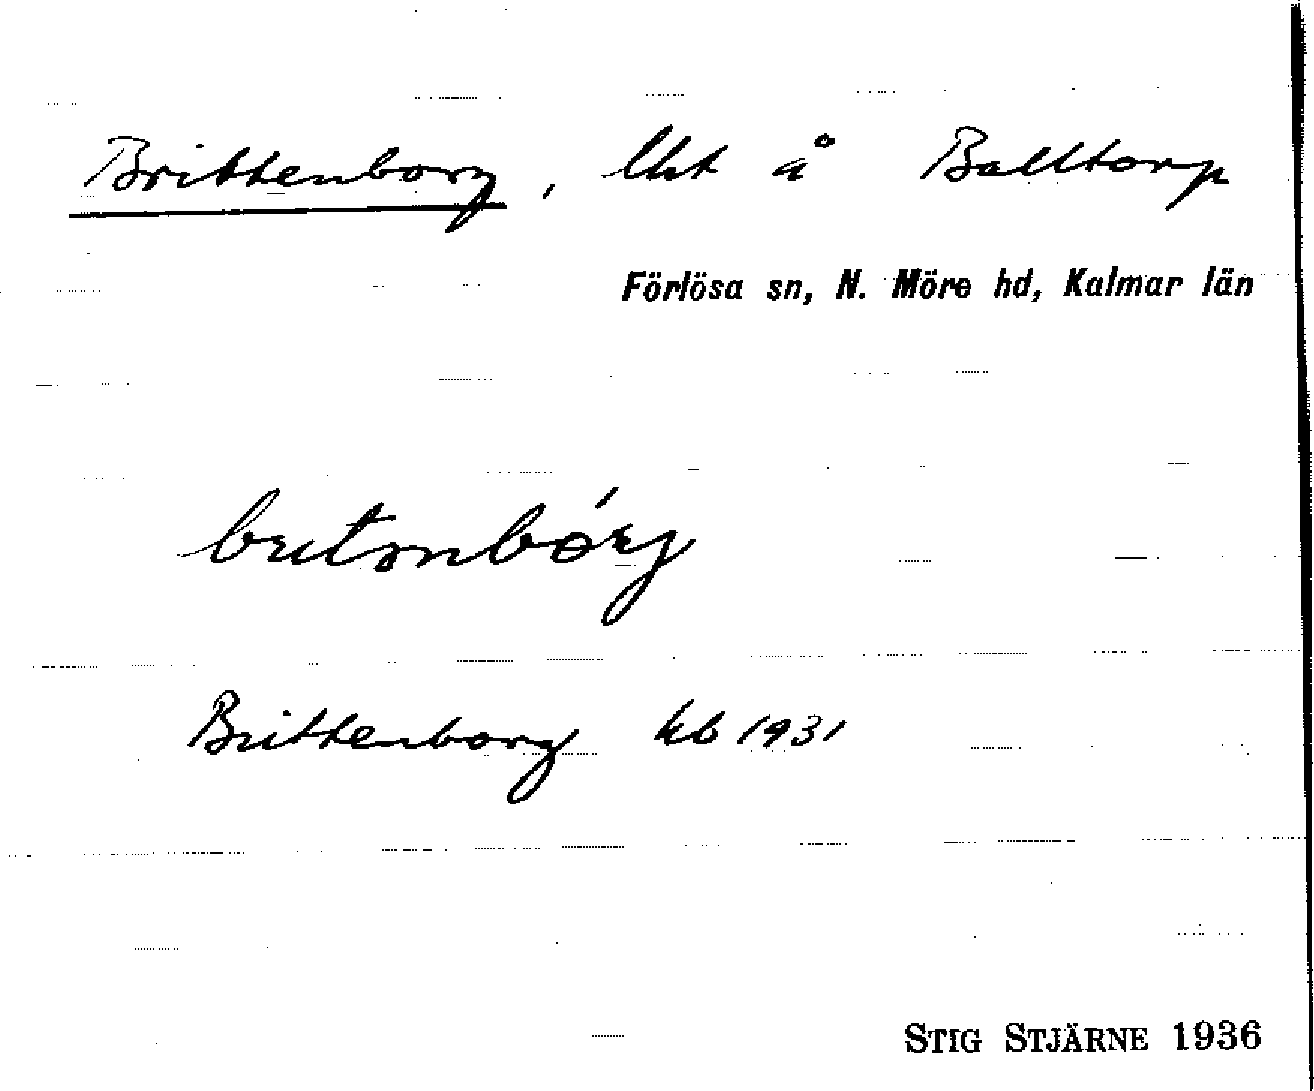 Brittenborg, lht å Balltorp
Förlösa sn, N. Möre hd, Kalmar län
Brittenborg kb 1931
STIG STJÄRNE 1936